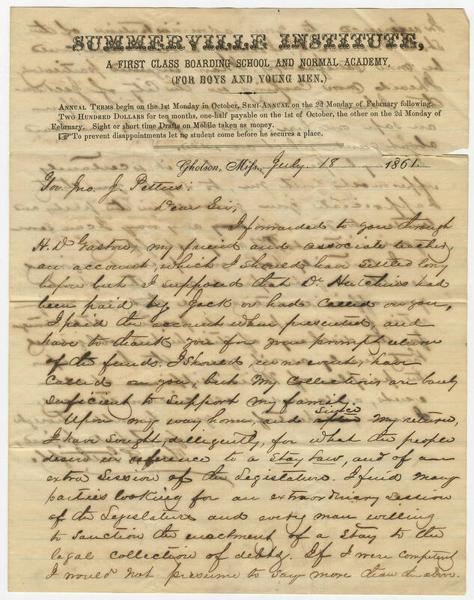 SUMMERVILLE INSTITUTE,
A FIRST CLASS BOARDING SCHOOL AND NORMAL ACADEMY,
(FOR BOYS AND YOUNG MEN.)
ANNUAL TERMS begin on the 1st Monday in October, SEMI-ANNUAL on the 2d Monday of February following.
TWO HUNDRED DOLLARS for ten months, one-half payable on the 1st of October, the other on the 2d Monday of
February. Sight or short time Drafts on Mobile taken as money.
☞ To prevent disappointments let no student come before he secures a place.
Gholson, Miss. July 18 1861.
Gov. Jno. J. Pettus:
Dear Sir,
I forwarded to you through
H. D. Gaston, my friend and associate teacher,
an account, which I should have settled long
before but I supposed that Dr. Hutchins had
been paid by Jack or had called on you,
I paid the account when presented, and
have to thank you for your prompt return
of the funds. I should, in no event, have
called on you, but my collections are barely
sufficient to support my family.
Upon my way home, and since my return,
I have sought, dilligently, for what the people
desire in reference to a Stay law, and of an
extra Session of the Legislature. I find many
parties looking for an extraordinary session
of the Legislature and every man willing
to sanction the enactment of a Stay to the
legal collection of debts. If I were competent
I would not presume to say more than the above.